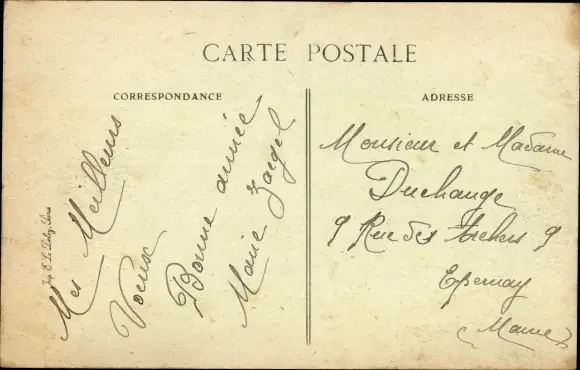 CARTE POSTALE
CORRESPONDANCE
Mes Meilleurs
Voeux
Bonne année
Marie Jaegel
Imp. E. L. Deley, Paris
ADRESSE
Monsieur et Madame
Duchange
9 Rue des Archers 9
Epernay
(Marne)